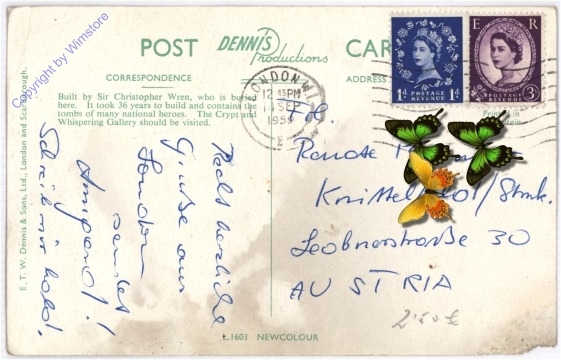 POST DENNIS Productions CARD
CORRESPONDENCE
ADDRESS
Built by Sir Christopher Wren, who is buried
here. It took 36 years to build and contains the
tombs of many national heroes. The Crypt and
Whispering Gallery should be visited.
Copyright by Wimstore
E. T. W. Dennis & Sons, Ltd., London and Scarborough.
Recht herzliche
Grüße aus
London
sendet
Schreib mir bald.
LONDON
12.45PM
14 SEP
E R
1d POSTAGE REVENUE 1d
POSTAGE REVENUE 3d
Knittelf
Leobnerstraße 30
AUSTRIA
2'50€
L.1603 NEWCOLOUR